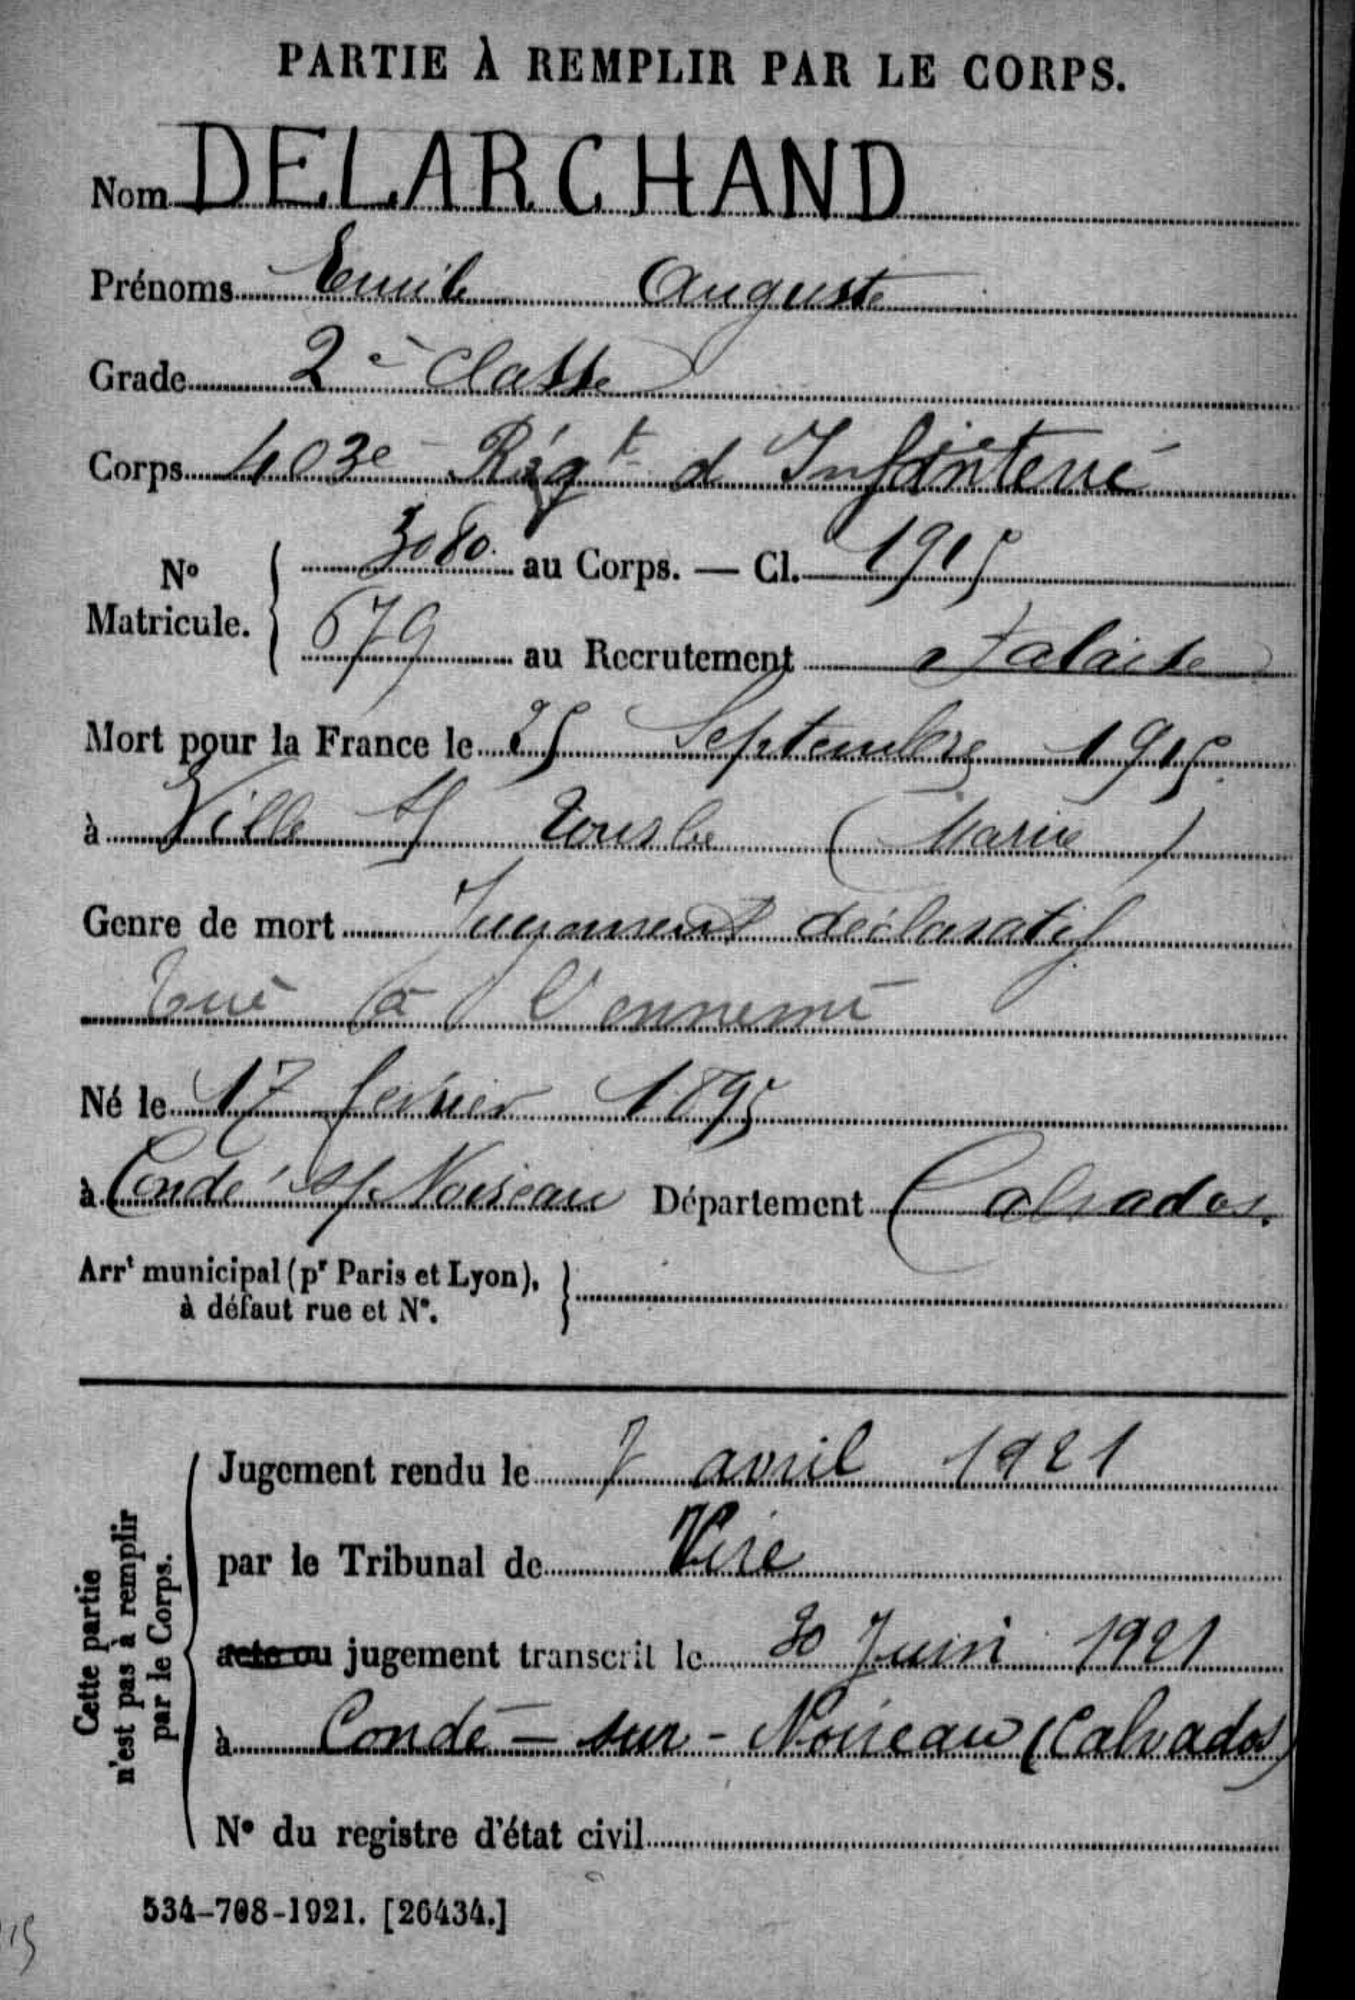 PARTIE À REMPLIR PAR LE CORPS.
Nom DELARCHAND
Prénoms Emile Auguste
Grade 2e Classe
Corps 403e Régt d'Infanterie
No Matricule. { 3080. au Corps. — Cl. 1915
679 au Recrutement Falaise
Mort pour la France le 25 Septembre 1915
à Ville s/ Tourbe (Marne)
Genre de mort Jugement déclaratif
Tué à l'ennemi
Né le 17 février 1895
à Condé s/ Noireau Département Calvados.
Arrt municipal (pr Paris et Lyon), }
à défaut rue et No.
Cette partie
n'est pas à remplir
par le Corps.
Jugement rendu le 7 avril 1921
par le Tribunal de Vire
acte ou jugement transcrit le 30 Juin 1921
à Condé-sur-Noireau (Calvados)
No du registre d'état civil
534-708-1921. [26434.]